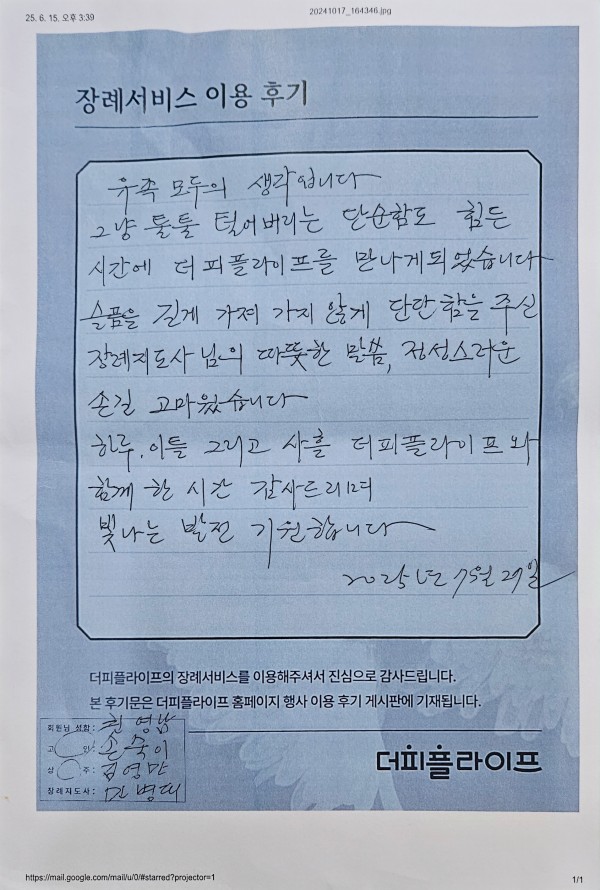 25. 6. 15. 오후 3:39
20241017_164346.jpg
장례서비스 이용 후기
유족 모두의 생각입니다
그냥 툴툴 털어버리는 단순함도 힘든
시간에 더피플라이프를 만나게되었습니다
슬픔을 길게 가져 가지 않게 단단함을 주신
장례지도사님의 따뜻한 말씀, 정성스러운
손길 고마웠습니다
하루, 이틀 그리고 사흘 더피플라이프와
함께 한 시간 감사드리며
빛나는 발전 기원합니다
2025년 월 29일
더피플라이프의 장례서비스를 이용해주셔서 진심으로 감사드립니다.
본 후기문은 더피플라이프 홈페이지 행사 이용 후기 게시판에 기재됩니다.
회원님 성함: 영남
고 인: 손숙이
상 주: 김영만
장례지도사: 민병대
더피플라이프
https://mail.google.com/mail/u/0/#starred?projector=1
1/1